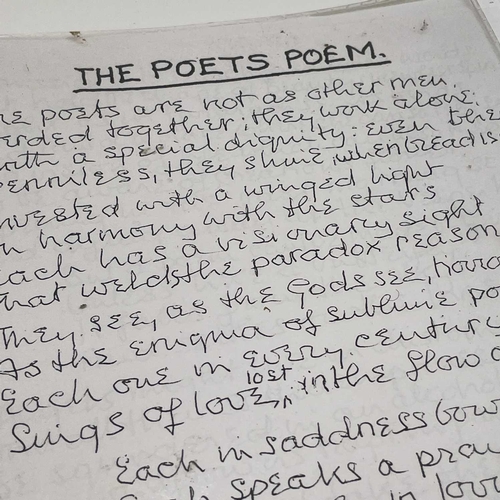 THE POETS POEM.
he poets are not as other men.
erded together; they work alone:
with a special dignity: even the
penniless, they shine, when bread is
nvested with a winged light
n harmony with the stars
each has a visionary sight
that welds the paradox reason
They see, as the Gods see,
As the enigma of sublime po
Each one in every centur
Sings of love, lost in the flow o
Each in saddness bow
speaks a pra
in lov